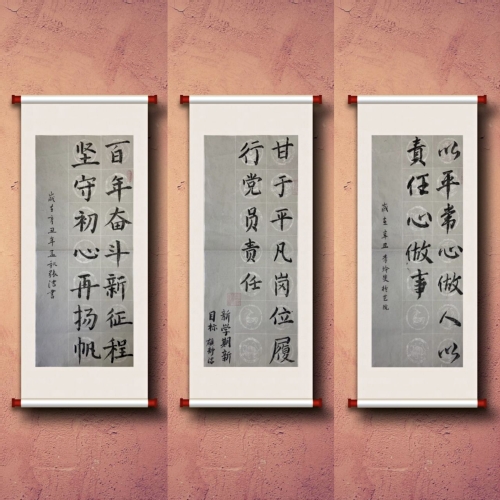 百年奋斗新征程
坚守初心再扬帆
歲在辛丑年孟秋張濤書
甘于平凡岗位履
行党员责任
新学期新
目标
以平常心做人以
責任心做事
歲在辛丑